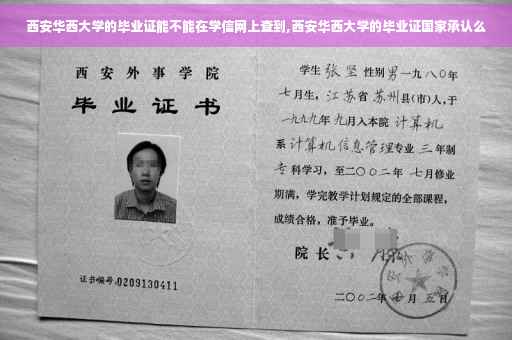 西安华西大学的毕业证能不能在学信网上查到,西安华西大学的毕业证国家承认么
西安外事学院
毕业证书
证书编号:0209130411
学生 张坚 性别 男 一九八〇年
七月生,江苏省 苏州 县(市)人,于
一九九九年 九月入本院 计算机
系 计算机信息管理 专业 三 年制
专 科学习,至二〇〇二年 七月修业
期满,学完教学计划规定的全部课程,
成绩合格,准予毕业。
院长
二〇〇二年 月 五 日